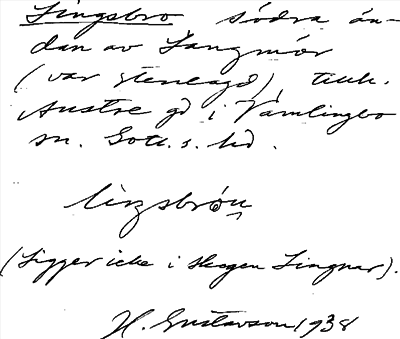 Lingsbro södra än-
dan av Langmör
(var stenlagd), tillh.
Austre gd i Vamlingbo
sn. Gotl. s. hd.
liŋsbrón
(Ligger icke i skogen Lingnar).
H. Gustavson 1938